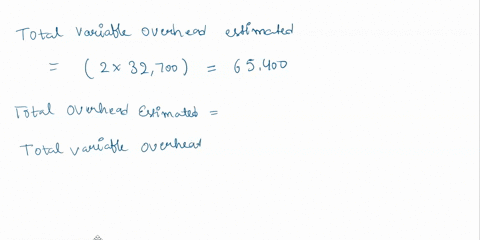 Total variable overhead estimated
= (2 × 32,700) = 65,400
Total overhead Estimated =
Total variable overhead